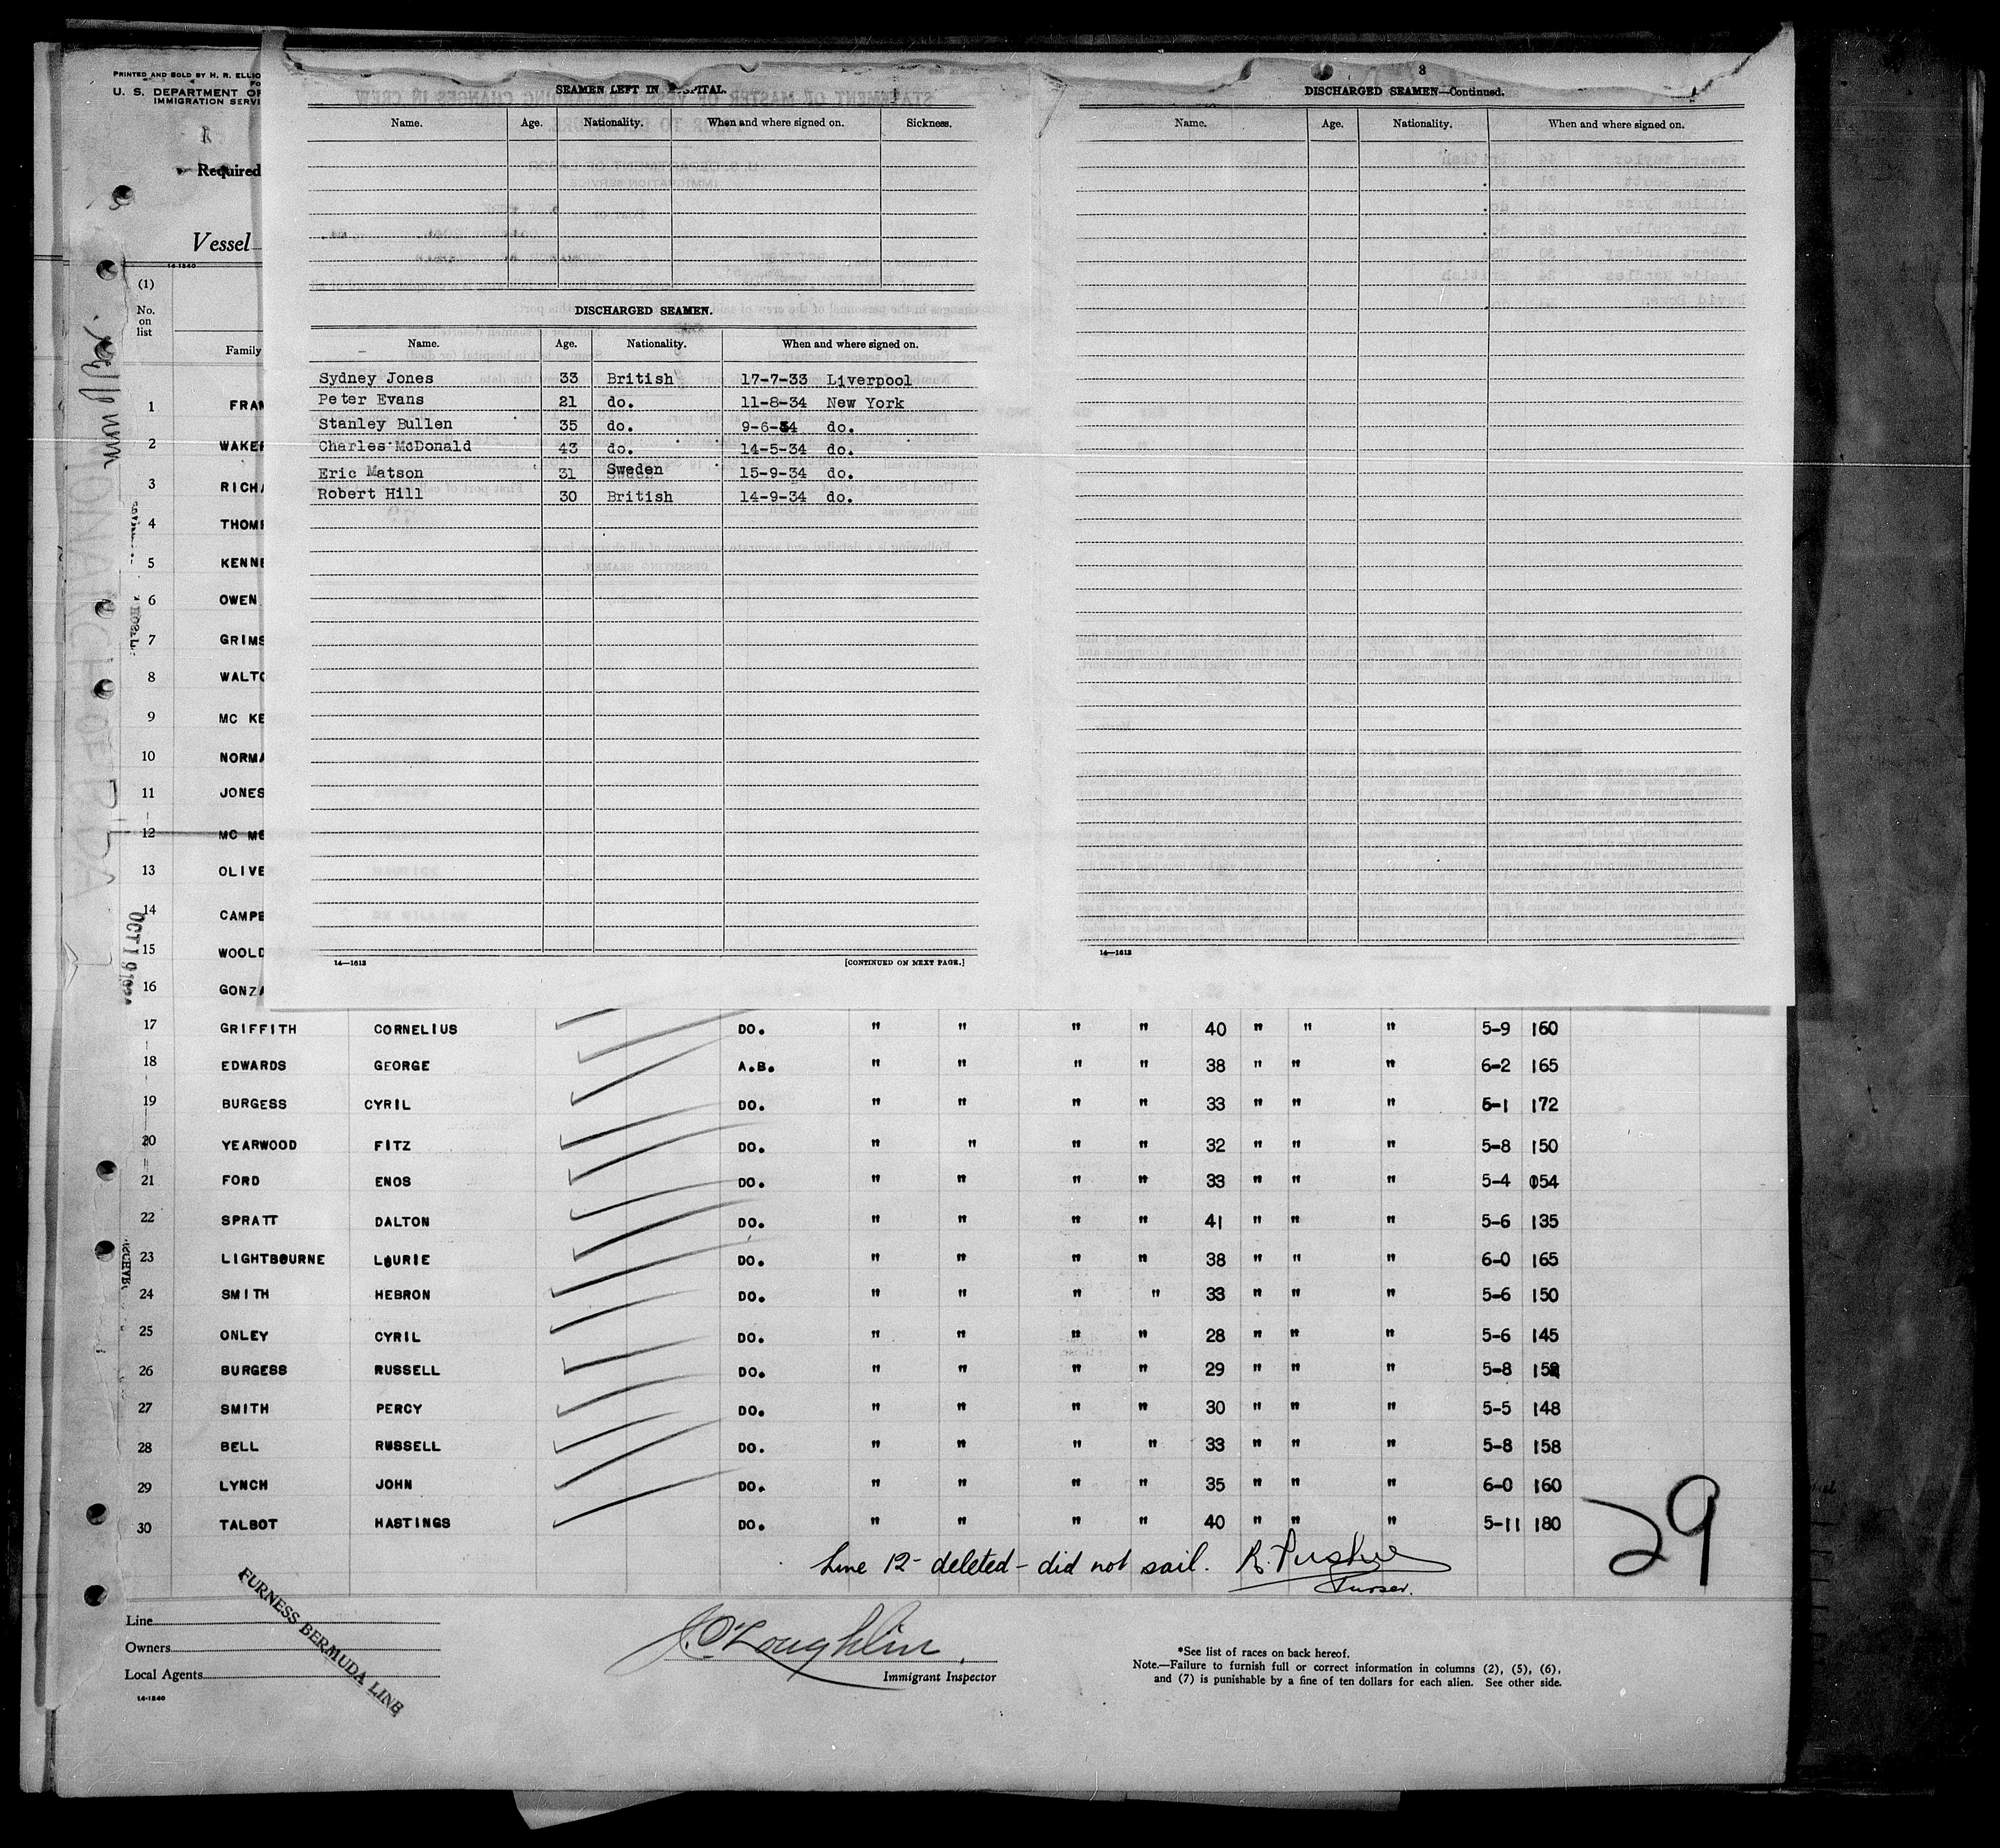 PRINTED AND SOLD BY H. R. ELLIO
U. S. DEPARTMENT OF
IMMIGRATION SERVI
Required
Vessel
14-1240
(1)
No. on list
Family
1 FRAN
2 WAKEF
3 RICHA
4 THOMP
5 KENNE
6 OWEN
7 GRIMS
8 WALTO
9 MC KE
10 NORMA
11 JONES
12 MC ME
13 OLIVE
14 CAMPE
15 WOOLD
16 GONZA
SEAMEN LEFT IN HOSPITAL.
Name. Age. Nationality. When and where signed on. Sickness.
DISCHARGED SEAMEN.
Name. Age. Nationality. When and where signed on.
Sydney Jones 33 British 17-7-33 Liverpool
Peter Evans 21 do. 11-8-34 New York
Stanley Bullen 35 do. 9-6-34 do.
Charles McDonald 43 do. 14-5-34 do.
Eric Matson 31 Sweden 15-9-34 do.
Robert Hill 30 British 14-9-34 do.
14—1613 [CONTINUED ON NEXT PAGE.]
3
DISCHARGED SEAMEN—Continued.
Name. Age. Nationality. When and where signed on.
14—1613
17 GRIFFITH CORNELIUS DO. " " " " 40 " " " 5-9 160
18 EDWARDS GEORGE A.B. " " " " 38 " " " 6-2 165
19 BURGESS CYRIL DO. " " " " 33 " " " 5-1 172
20 YEARWOOD FITZ DO. " " " " 32 " " " 5-8 150
21 FORD ENOS DO. " " " " 33 " " " 5-4 054
22 SPRATT DALTON DO. " " " " 41 " " " 5-6 135
23 LIGHTBOURNE LAURIE DO. " " " " 38 " " " 6-0 165
24 SMITH HEBRON DO. " " " " 33 " " " 5-6 150
25 ONLEY CYRIL DO. " " " " 28 " " " 5-6 145
26 BURGESS RUSSELL DO. " " " " 29 " " " 5-8
27 SMITH PERCY DO. " " " " 30 " " " 5-5 148
28 BELL RUSSELL DO. " " " " 33 " " " 5-8 158
29 LYNCH JOHN DO. " " " " 35 " " " 6-0 160
30 TALBOT HASTINGS DO. " " " " 40 " " " 5-11 180
29
Line 12 - deleted - did not sail. R.
Purser.
Line
Owners
Local Agents
14-1240
FURNESS BERMUDA LINE
J. O'Loughlin.
Immigrant Inspector
*See list of races on back hereof.
Note.—Failure to furnish full or correct information in columns (2), (5), (6),
and (7) is punishable by a fine of ten dollars for each alien. See other side.
MONARCH OF B'DA